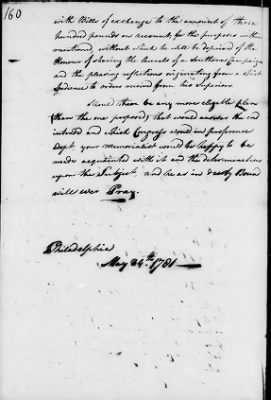 160
with Bills of exchange to the amount of three
hundred pounds on account, for the purposes within
mentioned, without which he will be deprived of the
Honour of sharing the Laurels of a Southern Campaign
and the pleasing reflections originating from a strict
Obedience to orders received from his Superiors.
Should there be any more eligible plan
(than the one proposed) that would answer the end
intended and which Congress would in preference
Adopt your Memorialist would be happy to be
made acquainted with it and the determinations
upon the Subject, and he as in duty Bound
will ever Pray.
Philadelphia
May 24th 1781